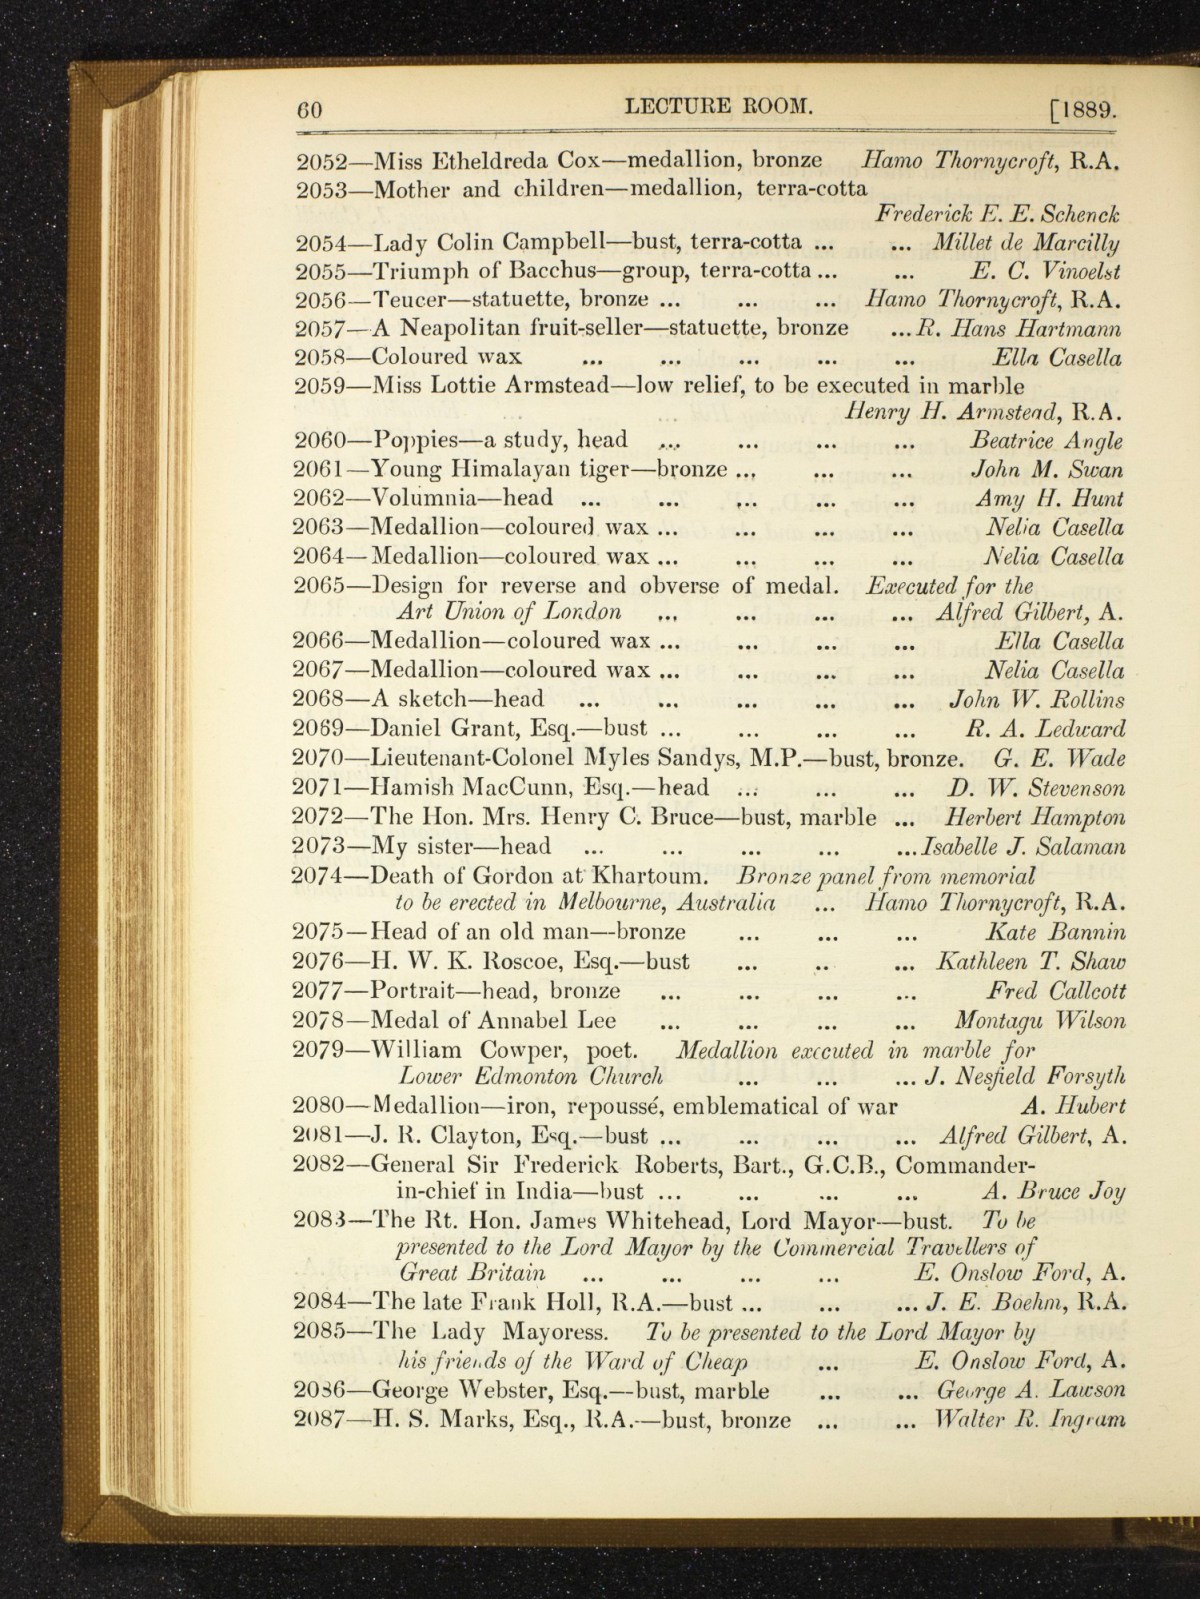 60 LECTURE ROOM. [1889.
2052—Miss Etheldreda Cox—medallion, bronze Hamo Thornycroft, R.A.
2053—Mother and children—medallion, terra-cotta
Frederick E. E. Schenck
2054—Lady Colin Campbell—bust, terra-cotta ... ... Millet de Marcilly
2055—Triumph of Bacchus—group, terra-cotta ... ... E. C. Vinoelst
2056—Teucer—statuette, bronze ... ... ... Hamo Thornycroft, R.A.
2057—A Neapolitan fruit-seller—statuette, bronze ... R. Hans Hartmann
2058—Coloured wax ... ... ... ... ... Ella Casella
2059—Miss Lottie Armstead—low relief, to be executed in marble
Henry H. Armstead, R.A.
2060—Poppies—a study, head ... ... ... ... Beatrice Angle
2061—Young Himalayan tiger—bronze ... ... ... John M. Swan
2062—Volumnia—head ... ... ... ... ... Amy H. Hunt
2063—Medallion—coloured wax ... ... ... ... Nelia Casella
2064—Medallion—coloured wax ... ... ... ... Nelia Casella
2065—Design for reverse and obverse of medal. Executed for the
Art Union of London ... ... ... ... Alfred Gilbert, A.
2066—Medallion—coloured wax ... ... ... ... Ella Casella
2067—Medallion—coloured wax ... ... ... ... Nelia Casella
2068—A sketch—head ... ... ... ... ... John W. Rollins
2069—Daniel Grant, Esq.—bust ... ... ... ... R. A. Ledward
2070—Lieutenant-Colonel Myles Sandys, M.P.—bust, bronze. G. E. Wade
2071—Hamish MacCunn, Esq.—head ... ... ... D. W. Stevenson
2072—The Hon. Mrs. Henry C. Bruce—bust, marble ... Herbert Hampton
2073—My sister—head ... ... ... ... ... Isabelle J. Salaman
2074—Death of Gordon at Khartoum. Bronze panel from memorial
to be erected in Melbourne, Australia ... Hamo Thornycroft, R.A.
2075—Head of an old man—bronze ... ... ... Kate Bannin
2076—H. W. K. Roscoe, Esq.—bust ... .. ... Kathleen T. Shaw
2077—Portrait—head, bronze ... ... ... ... Fred Callcott
2078—Medal of Annabel Lee ... ... ... ... Montagu Wilson
2079—William Cowper, poet. Medallion executed in marble for
Lower Edmonton Church ... ... ... J. Nesfield Forsyth
2080—Medallion—iron, repoussé, emblematical of war A. Hubert
2081—J. R. Clayton, Esq.—bust ... ... ... ... Alfred Gilbert, A.
2082—General Sir Frederick Roberts, Bart., G.C.B., Commander-
in-chief in India—bust ... ... ... ... A. Bruce Joy
2083—The Rt. Hon. James Whitehead, Lord Mayor—bust. To be
presented to the Lord Mayor by the Commercial Travellers of
Great Britain ... ... ... ... E. Onslow Ford, A.
2084—The late Frank Holl, R.A.—bust ... ... ... J. E. Boehm, R.A.
2085—The Lady Mayoress. To be presented to the Lord Mayor by
his friends of the Ward of Cheap ... E. Onslow Ford, A.
2086—George Webster, Esq.—bust, marble ... ... George A. Lawson
2087—H. S. Marks, Esq., R.A.—bust, bronze ... ... Walter R. Ingram